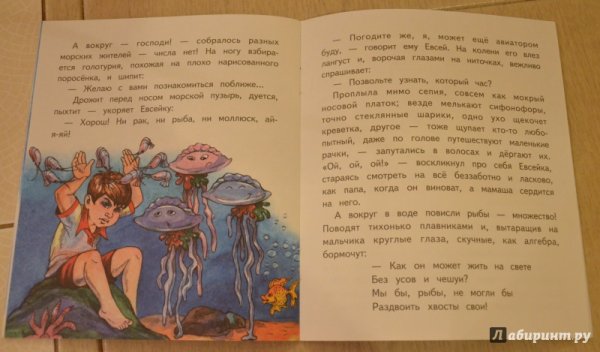 А вокруг — господи! — собралось разных
морских жителей — числа нет! На ногу взбира-
ется голотурия, похожая на плохо нарисованного
поросёнка, и шипит:
— Желаю с вами познакомиться поближе...
Дрожит перед носом морской пузырь, дуется,
пыхтит — укоряет Евсейку:
— Хорош! Ни рак, ни рыба, ни моллюск, ай-
я-яй!
— Погодите же, я, может ещё авиатором
буду, — говорит ему Евсей. На колени его влез
лангуст и, ворочая глазами на ниточках, вежливо
спрашивает:
— Позвольте узнать, который час?
Проплыла мимо сепия, совсем как мокрый
носовой платок; везде мелькают сифонофоры,
точно стеклянные шарики, одно ухо щекочет
креветка, другое — тоже щупает кто-то любо-
пытный, даже по голове путешествуют маленькие
рачки, — запутались в волосах и дёргают их.
«Ой, ой, ой!» — воскликнул про себя Евсейка,
стараясь смотреть на всё беззаботно и ласково,
как папа, когда он виноват, а мамаша сердится
на него.
А вокруг в воде повисли рыбы — множество!
Поводят тихонько плавниками и, вытаращив на
мальчика круглые глаза, скучные, как алгебра,
бормочут:
— Как он может жить на свете
Без усов и чешуи?
Мы бы, рыбы, не могли бы
Раздвоить хвосты свои!
Лабиринт.ру